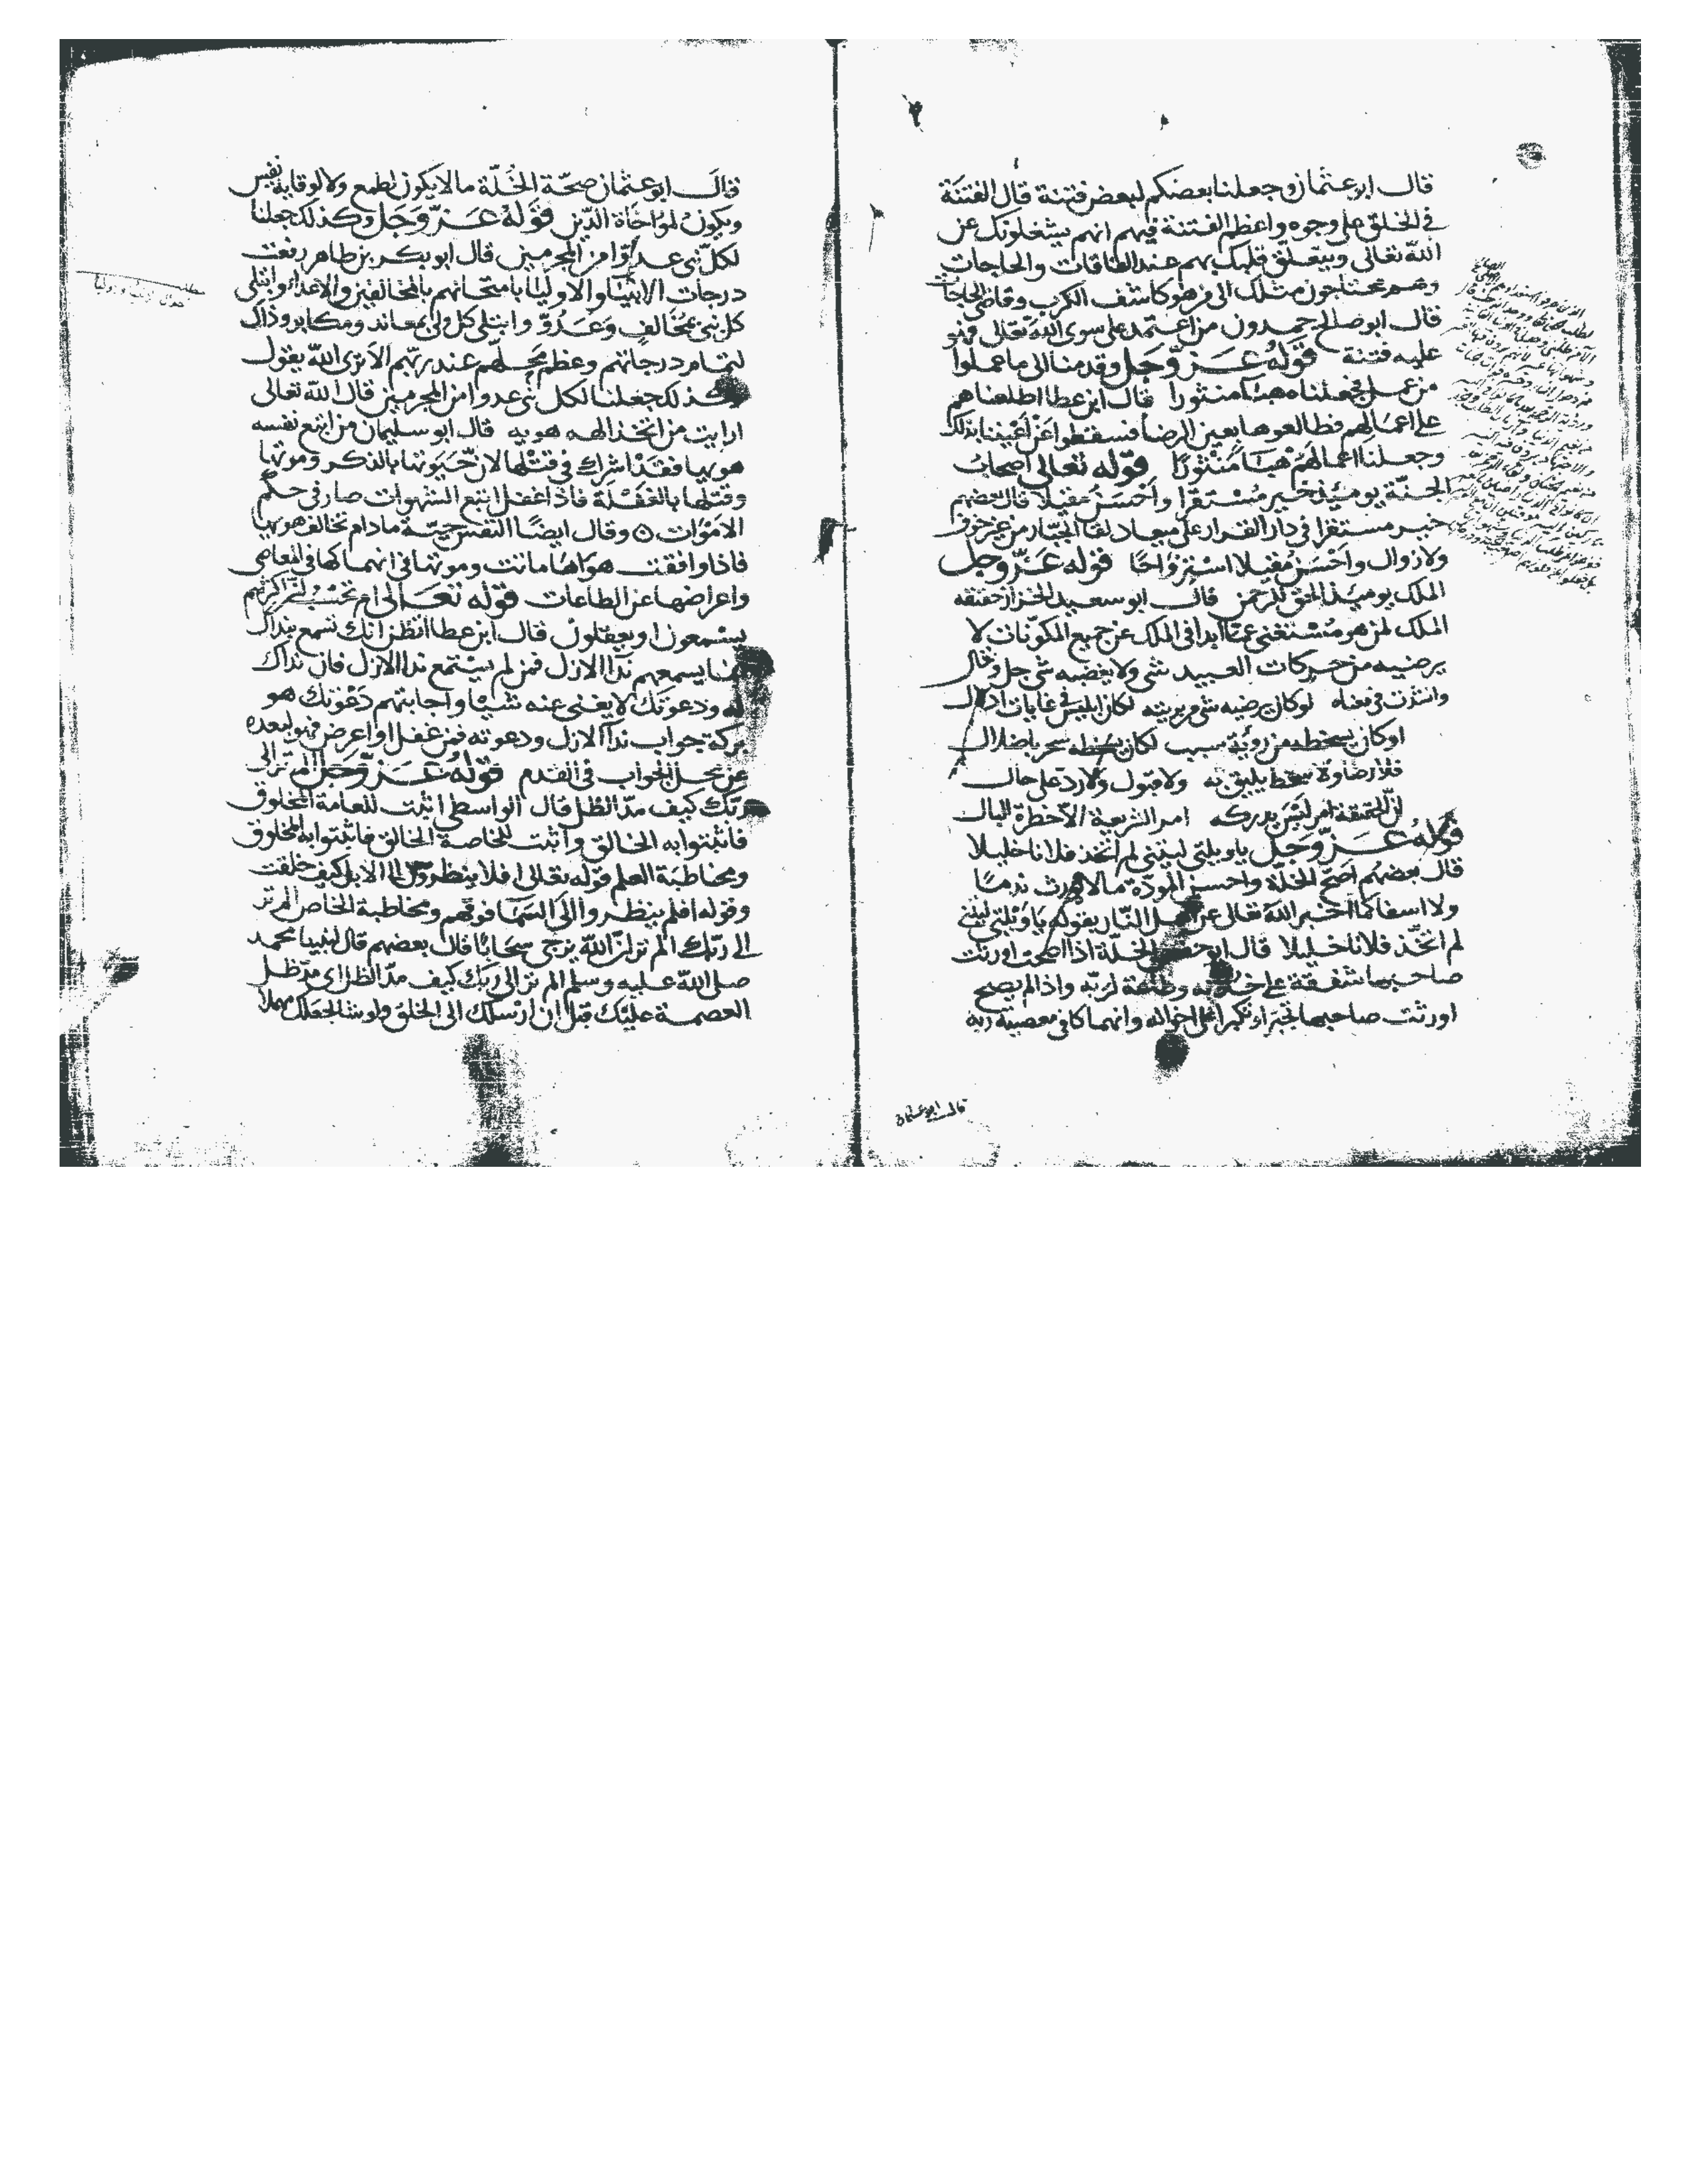 قال ابو عثمان وجعلنا بعضكم لبعض فتنة قال الفتنة
في الخلق على وجوه واعظم الفتنة فيهم انهم يشغلونك عن
الله تعالى ويتعلق قلبك بهم عند الفاقات والحاجات
وهم محتاجون مثلك الى من هو كاشف الكرب وقاضى الحاجات
قال ابو صالح حمدون من اعتمد على سوى الله تعالى فهو
عليه فتنة قوله عز وجل وقدمنا الى ما عملوا
من عمل فجعلناه هباء منثورا قال ابن عطا اطلعناهم
على اعمالهم فطالعوها بعين الرضا فسقطوا عن اعيننا بذلك
وجعلنا اعمالهم هبا منثورا قوله تعالى اصحاب
الجنة يوميذ خير مستقرا واحسن مقيلا قال بعضهم
خير مستقرا في دار القرار على ميعاد لقا الجبار من غير خوف
ولا زوال واحسن مقيلا استرواحا قوله عز وجل
الملك يوميذ الحق للرحمن قال ابو سعيد الخراز حقيقه
الملك لمن هو مستغنى عما ابدا في الملك عن جميع المكونات لا
يرضيه من حركات العبيد شى ولا يغضبه شى جل وقال
وانشدت في معناه لو كان يرضيه شى من بريته لكان ابليس في غايات
او كان يسخطه من رؤية سبب لكان يسخطه سحر باضلال
فلا رضا ولا سخط يليق به ولا قبول ولا رد على حال
لن الحقيقة امر ليس يدركه امر الشريعة الا خطرة البال
قوله عز وجل ياويلتى ليتنى لم اتخذ فلانا خليلا
قال بعضهم اصح الخلة واحسن المودة ما لا يورث ندما
ولا اسفا كما اخبر الله تعالى عن اهل النار بقوله ياويلتى ليتنى
لم اتخذ فلانا خليلا قال ابو حفص الخلة اذا اصحت اورثت
صاحبها شفقة على اخوانه وطاعة لربه واذا لم يصح
اورثت صاحبها تكبرا على اخوانه وانهماكا في معصية ربه
قال ابو عثمان
قال ابو عثمان صحة الخلة ما لا يكون لطمع ولا لوقاية نفس
ويكون لمواخاة الدين قوله عز وجل وكذلك جعلنا
لكل نبى عدوا من المجرمين قال ابو بكر بن طاهر رفعت
درجات الانبيا والاوليا بامتحانهم بالمخالفين والاعداء وابتلى
كل نبى بمخالف وعدو وابتلى كل ولى بمعاند ومكابر وذاك
لتمام درجاتهم وعظم محلهم عند ربهم الا ترى الله يقول
وكذلك جعلنا لكل نبى عدوا من المجرمين قال الله تعالى
ارايت من اتخذ الهه هويه قال ابو سليمان من اتبع نفسه
هويها فقد اشرك في قتلها لان حيوتها بالذكر وموتها
وقتلها بالغفلة فاذا غفل اتبع الشهوات صار في حكم
الاموات ۝ وقال ايضا النفس حية ما دام تخالف هويها
فاذا وافقت هواها ماتت وموتها في انهماكها في المعاصى
واعراضها عن الطاعات قوله تعالى ام تحسب ان اكثرهم
يسمعون او يعقلون قال ابن عطا اتظن انك تسمع نداك
انما يسمعهم ندا الازل فمن لم يستمع ندا الازل فان نداك
له ودعوتك لا يغنى عنه شيا واجابتهم دعوتك هو
بركة جواب ندا الازل ودعوته فمن غفل او اعرض فهو لبعده
عن محل الجواب في القدم قوله عز وجل الم تر الى
ربك كيف مد الظل قال الواسطى اثبت للعامة المخلوق
فاثبتوا به الخالق واثبت للخاصة الخالق فاثبتوا به المخلوق
ومخاطبة العلم قوله تعالى افلا ينظرون الى الابل كيف خلقت
وقوله افلم ينظروا الى السما فوقهم ومخاطبة الخاص الم تر
الى ربك الم تر ان الله يزجى سحابا قال بعضهم قال لنبينا محمد
صلى الله عليه وسلم الم تر الى ربك كيف مد الظل اى مد ظل
العصمة عليك قبل ان ارسلك الى الخلق ولو شا لجعلك مهملا